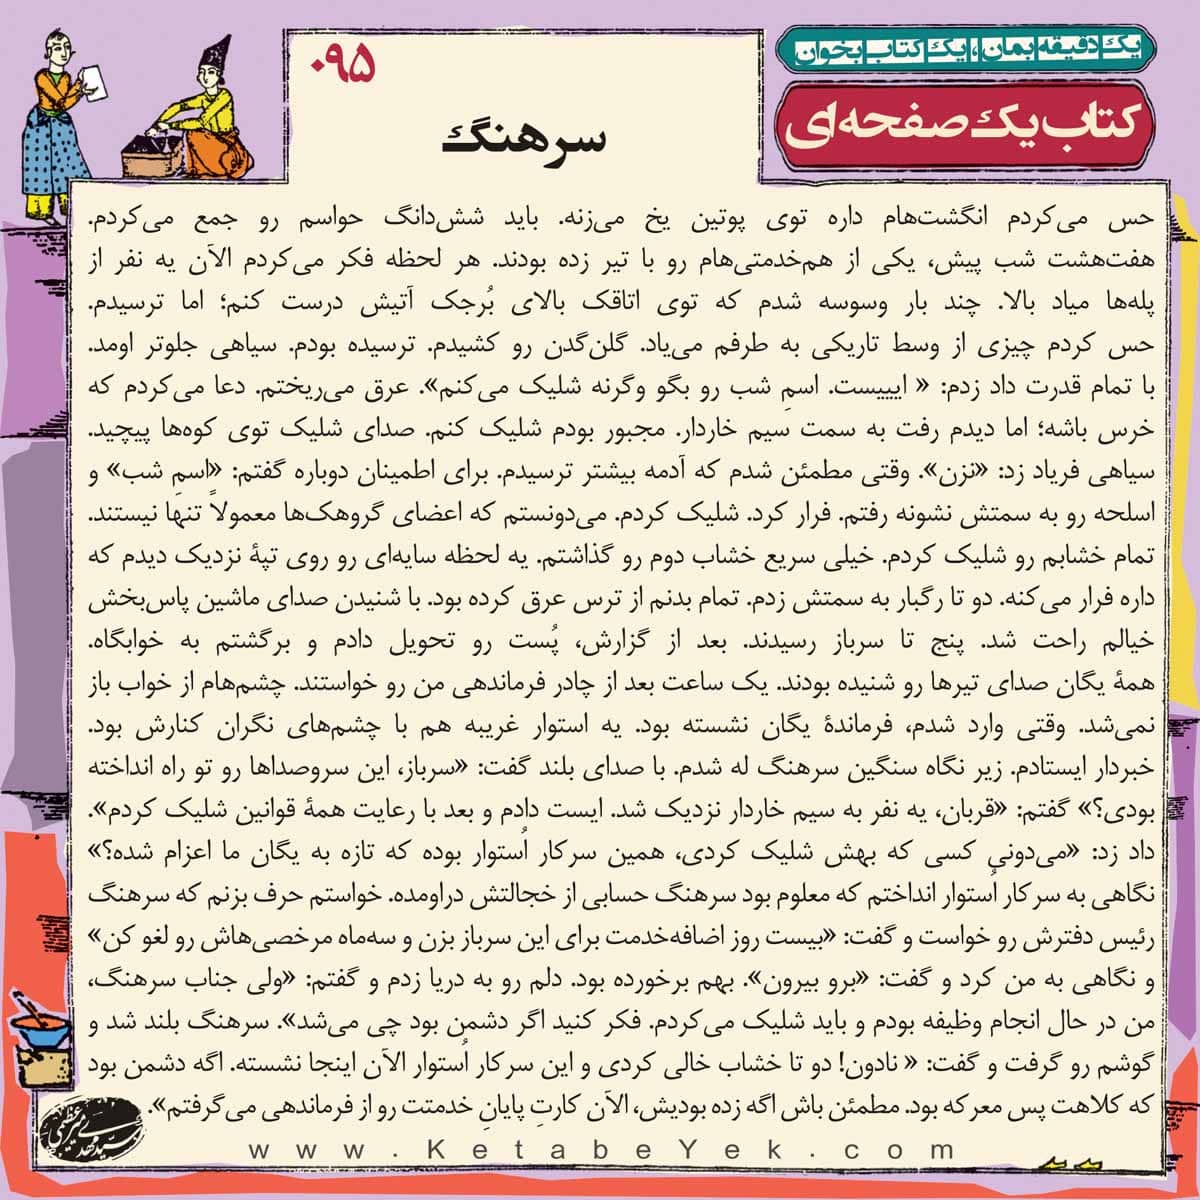 یک دقیقه بمان، یک کتاب بخوان
کتاب یک صفحه‌ای
۰۹۵
سرهنگ
حس می‌کردم انگشت‌هام داره توی پوتین یخ می‌زنه. باید شش‌دانگ حواسم رو جمع می‌کردم.
هفت‌هشت شب پیش، یکی از هم‌خدمتی‌هام رو با تیر زده بودند. هر لحظه فکر می‌کردم الآن یه نفر از
پله‌ها میاد بالا. چند بار وسوسه شدم که توی اتاقک بالای بُرجک آتیش درست کنم؛ اما ترسیدم.
حس کردم چیزی از وسط تاریکی به طرفم می‌یاد. گلن‌گدن رو کشیدم. ترسیده بودم. سیاهی جلوتر اومد.
با تمام قدرت داد زدم: « ایییست. اسمِ شب رو بگو وگرنه شلیک می‌کنم». عرق می‌ریختم. دعا می‌کردم که
خرس باشه؛ اما دیدم رفت به سمت سیم خاردار. مجبور بودم شلیک کنم. صدای شلیک توی کوه‌ها پیچید.
سیاهی فریاد زد: «نزن». وقتی مطمئن شدم که آدمه بیشتر ترسیدم. برای اطمینان دوباره گفتم: «اسمِ شب» و
اسلحه رو به سمتش نشونه رفتم. فرار کرد. شلیک کردم. می‌دونستم که اعضای گروهک‌ها معمولاً تنها نیستند.
تمام خشابم رو شلیک کردم. خیلی سریع خشاب دوم رو گذاشتم. یه لحظه سایه‌ای رو روی تپهٔ نزدیک دیدم که
داره فرار می‌کنه. دو تا رگبار به سمتش زدم. تمام بدنم از ترس عرق کرده بود. با شنیدن صدای ماشین پاس‌بخش
خیالم راحت شد. پنج تا سرباز رسیدند. بعد از گزارش، پُست رو تحویل دادم و برگشتم به خوابگاه.
همهٔ یگان صدای تیرها رو شنیده بودند. یک ساعت بعد از چادر فرماندهی من رو خواستند. چشم‌هام از خواب باز
نمی‌شد. وقتی وارد شدم، فرماندهٔ یگان نشسته بود. یه استوار غریبه هم با چشم‌های نگران کنارش بود.
خبردار ایستادم. زیر نگاه سنگین سرهنگ له شدم. با صدای بلند گفت: «سرباز، این سروصداها رو تو راه انداخته
بودی؟» گفتم: «قربان، یه نفر به سیم خاردار نزدیک شد. ایست دادم و بعد با رعایت همهٔ قوانین شلیک کردم».
داد زد: «می‌دونی کسی که بهش شلیک کردی، همین سرکار اُستوار بوده که تازه به یگان ما اعزام شده؟»
نگاهی به سرکار اُستوار انداختم که معلوم بود سرهنگ حسابی از خجالتش دراومده. خواستم حرف بزنم که سرهنگ
رئیس دفترش رو خواست و گفت: «بیست روز اضافه‌خدمت برای این سرباز بزن و سه‌ماه مرخصی‌هاش رو لغو کن»
و نگاهی به من کرد و گفت: «برو بیرون». بهم برخورده بود. دلم رو به دریا زدم و گفتم: «ولی جناب سرهنگ،
من در حال انجام وظیفه بودم و باید شلیک می‌کردم. فکر کنید اگر دشمن بود چی می‌شد». سرهنگ بلند شد و
گوشم رو گرفت و گفت: « نادون! دو تا خشاب خالی کردی و این سرکار اُستوار الآن اینجا نشسته. اگه دشمن بود
که کلاهت پس معرکه بود. مطمئن باش اگه زده بودیش، الآن کارتِ پایانِ خدمتت رو از فرماندهی می‌گرفتم».
www.KetabeYek.com